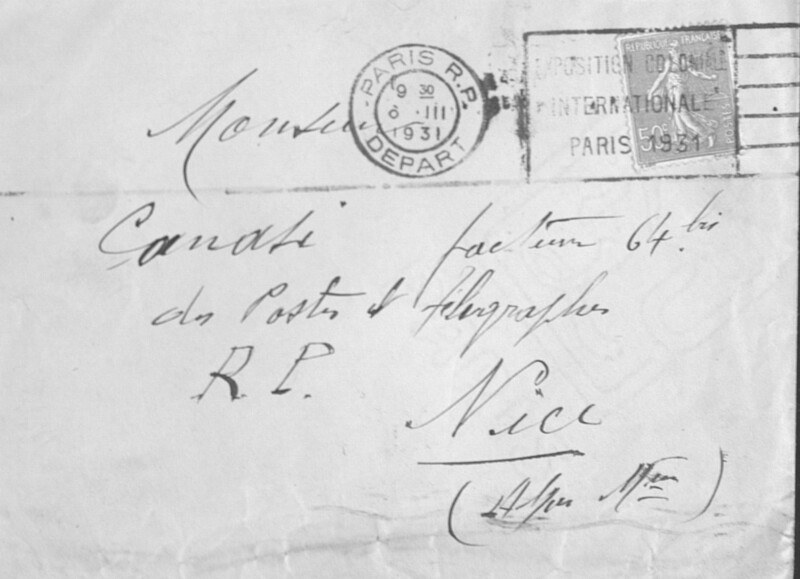 PARIS R.P.
9 30
6 III
1931
DEPART
EXPOSITION COLONIALE
INTERNATIONALE
PARIS 1931
REPUBLIQUE FRANÇAISE
50c
POSTES
Monsieur
facteur 64 bis
des Postes et Télégraphes
R. P.
Nice
(Alpes Mmes)